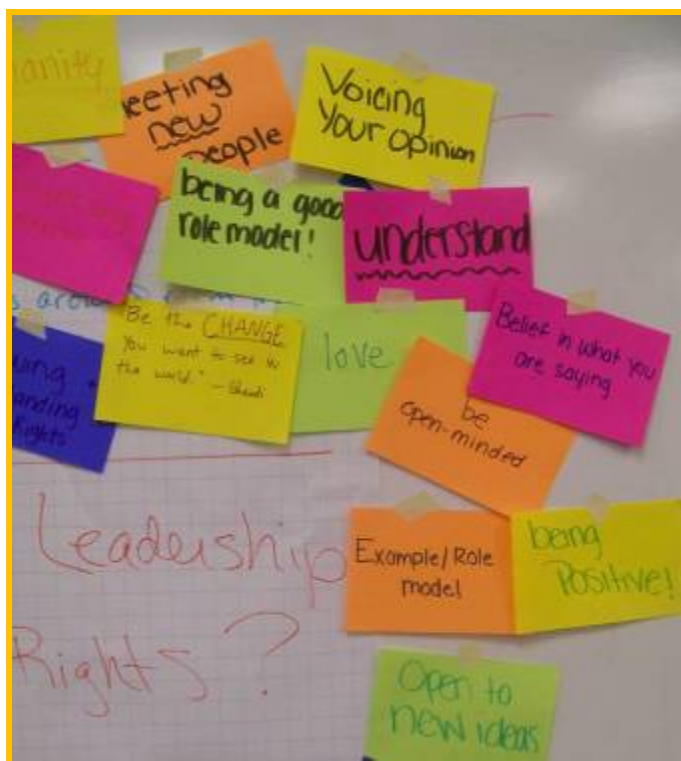 anity
eeting
new
people
Voicing
Your opinion
being a good
role model!
understand
Be the CHANGE
you want to see in
the world." - Ghandi
love
Belief in what you
are saying
be
open-minded
anding
Rights
Leadership
Rights?
Example/Role
model
being
Positive!
Open to
new ideas